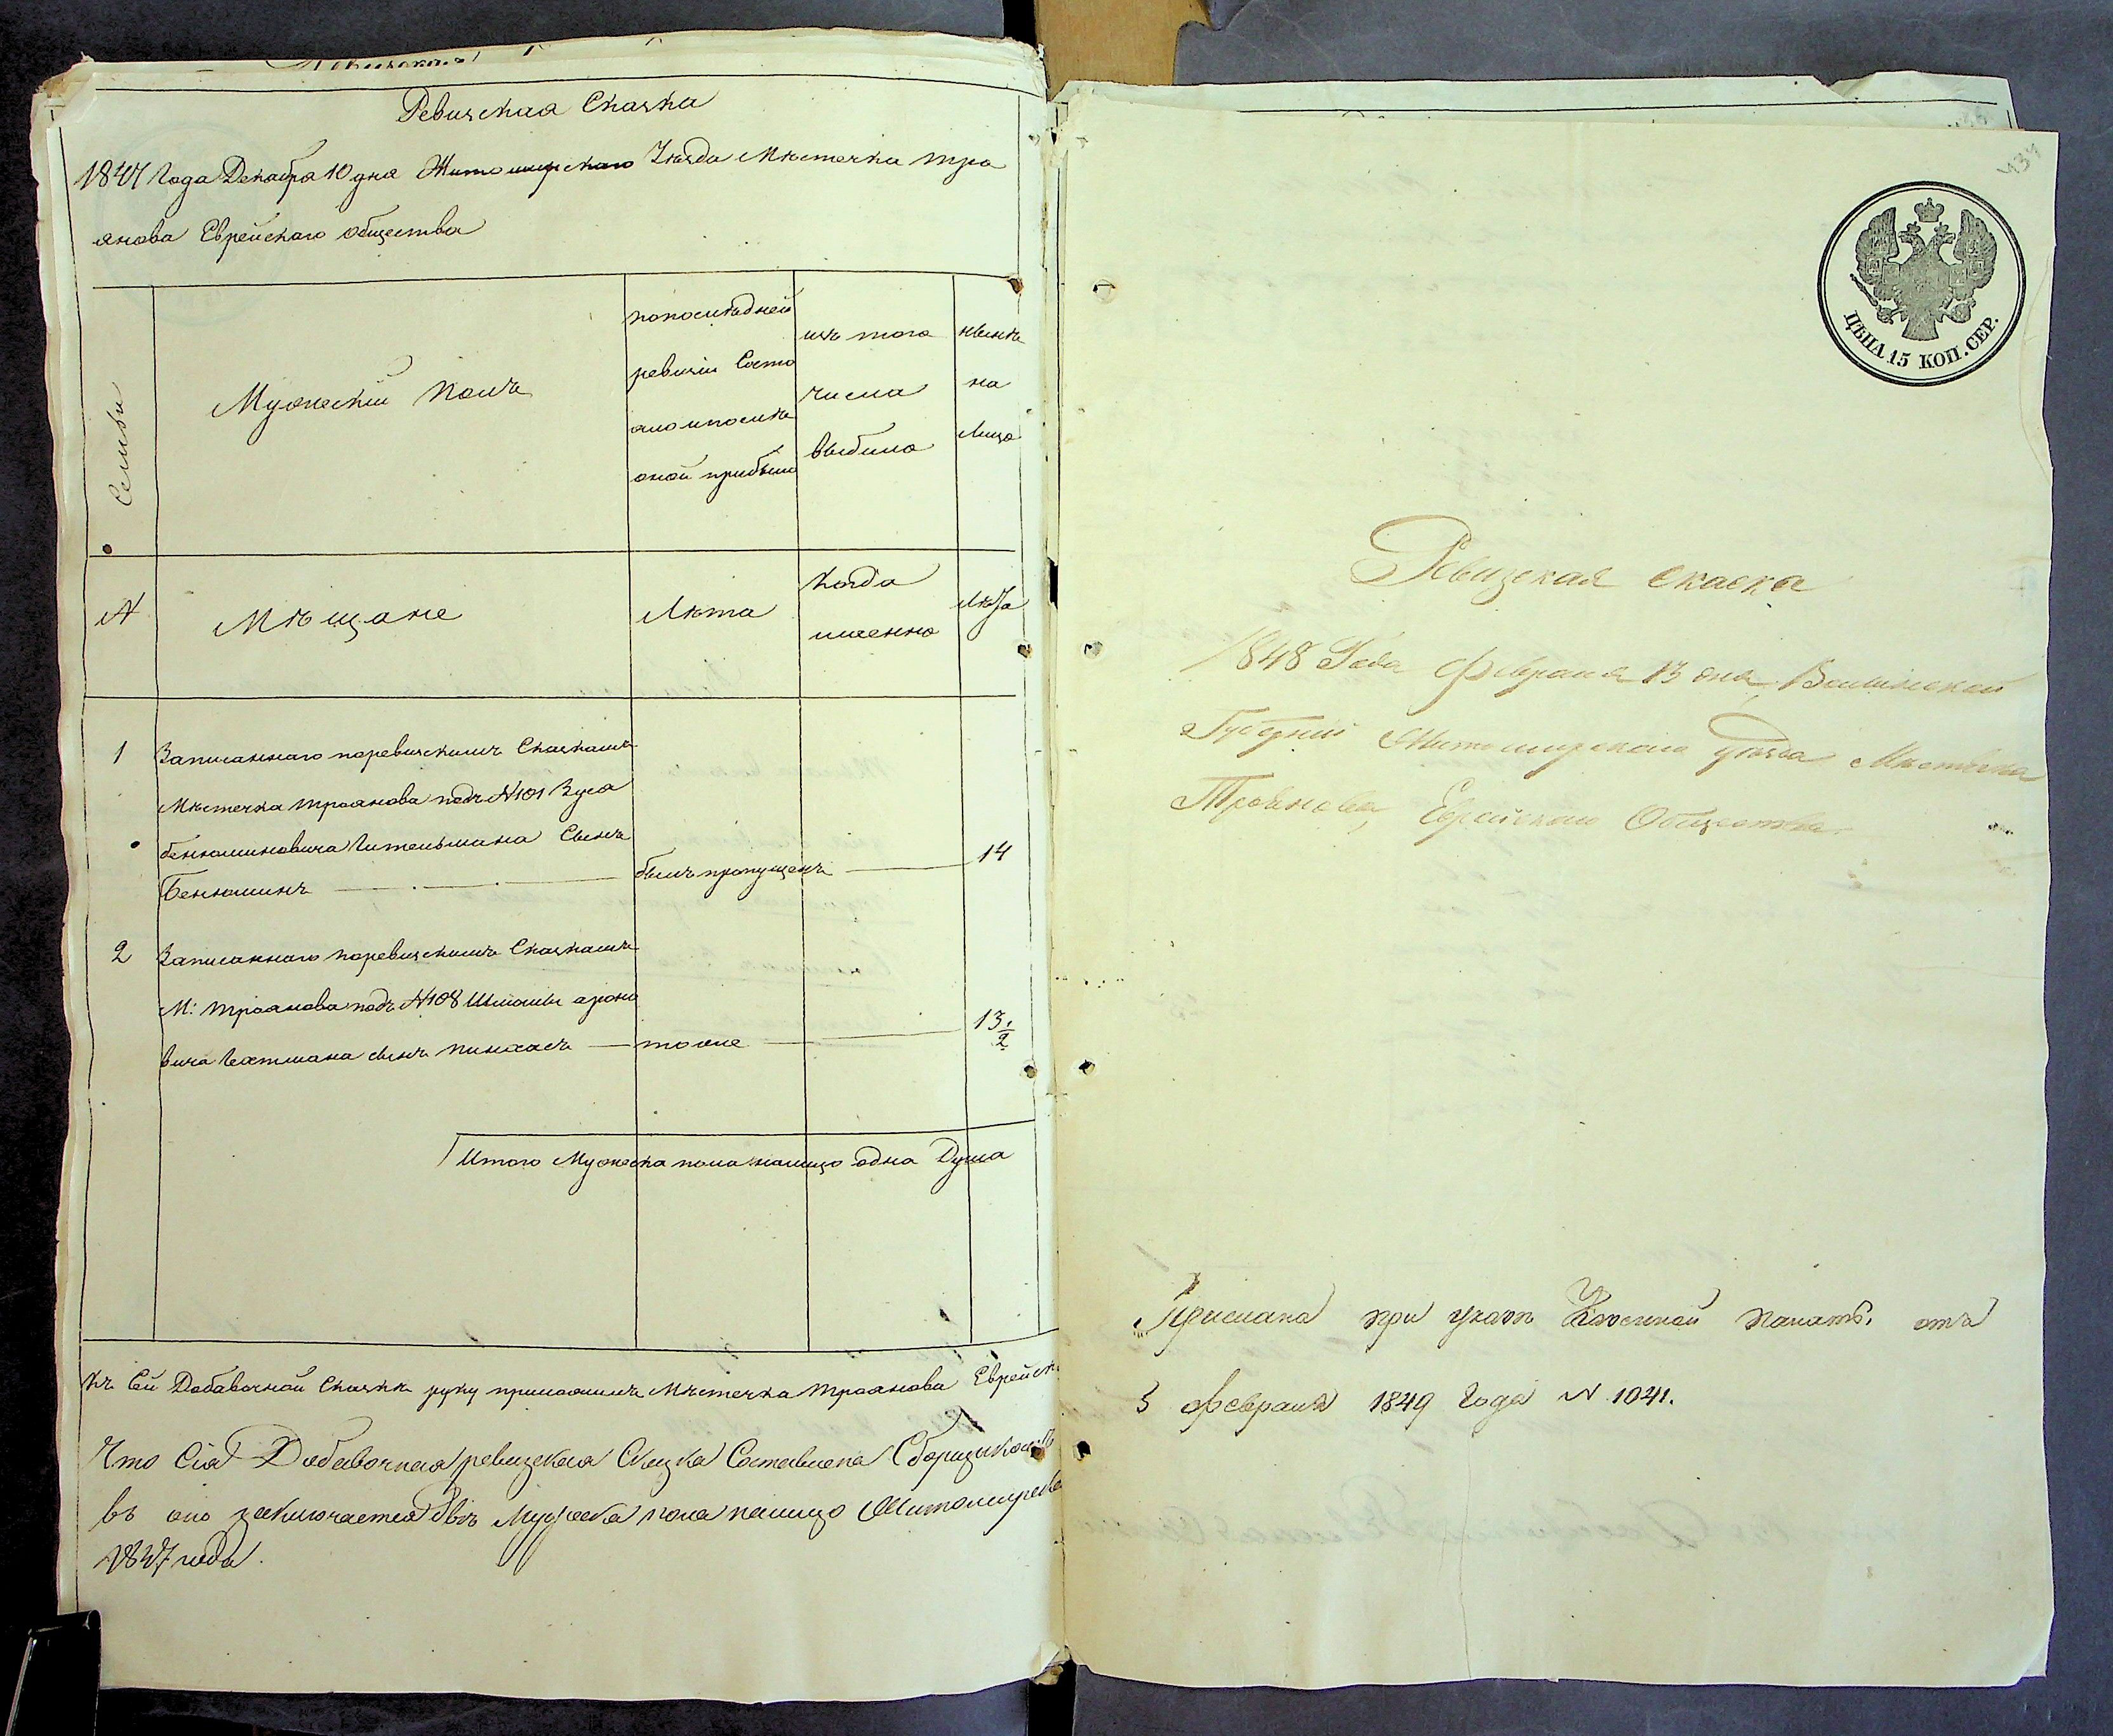 Ревизская Сказка
1847 Года Декабра 10 дня Житомирскаго Уѣзда Мѣстечка Тро
янова Еврейскаго общества
Семьи
Мужескій полъ
попослѣдней
ревизіи Состо
яло ипослѣ
оной прибыло
изъ того
числа
выбыло
нынѣ
на
лицо
N
Мѣщане
Лѣта
Когда
именно
Лѣта
1 Записаннаго поревизскимъ Сказкамъ
Мѣстечка Троянова подъ N 101 Зуса
беньюминовича Гительмана Сынъ
Беньюминъ былъ пропущенъ 14
2 Записаннаго поревизскимъ Сказкамъ
М: Троянова подъ N 108 Шмоилы ароно
вича Гехтмана сынъ пинхасъ тоже 13 1/2
Итого Мужеска пола налицо одна Душа
Къ Сей Добавочной Сказкѣ руку приложилъ Мѣстечка Троянова Еврейск
Что Сія Добавочная ревизская Сказка Составлена Сборщикомъ
въ оно заключается двѣ Мужеска пола налицо Житомирск
1847 года.
137
ЦѢНА 15 КОП. СЕР.
Ревизская сказка
1848 Года Февраля 13 дня Волынской
Губерніи Житомирскаго уѣзда Мѣстечка
Троянова, Еврейскаго Общества
Прислана при указѣ Казенной палаты отъ
3 февраля 1849 года N 1041.